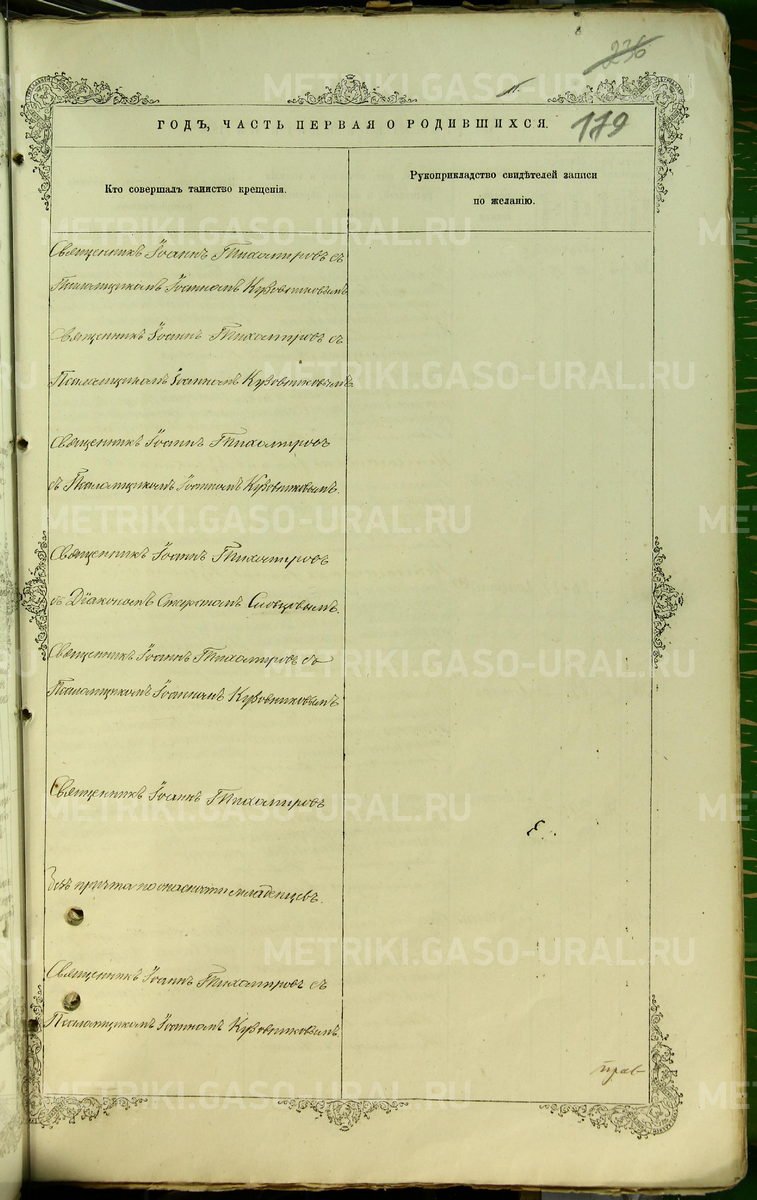 236
ГОДЪ, ЧАСТЬ ПЕРВАЯ О РОДИВШИХСЯ.
179
Кто совершалъ таинство крещенія.
Рукоприкладство свидѣтелей записи
по желанію.
Священникъ Іоаннъ Тихомировъ съ
Паламщикомъ Іоанномъ Кузовниковымъ
Священникъ Іоаннъ Тихомировъ съ
Паламщикомъ Іоанномъ Кузовниковымъ
Священникъ Іоаннъ Тихомировъ
съ Паламщикомъ Іоанномъ Кузовниковымъ.
Священникъ Іоаннъ Тихомировъ
съ Діакономъ Словцовымъ.
Священникъ Іоаннъ Тихомировъ съ
Паламщикомъ Іоанномъ Кузовниковымъ
Священникъ Іоаннъ Тихомировъ
причта по опасности младенцевъ.
Священникъ Іоаннъ Тихомировъ съ
Паламщикомъ Іоанномъ Кузовниковымъ.
METRIKI.GASO-URAL.RU